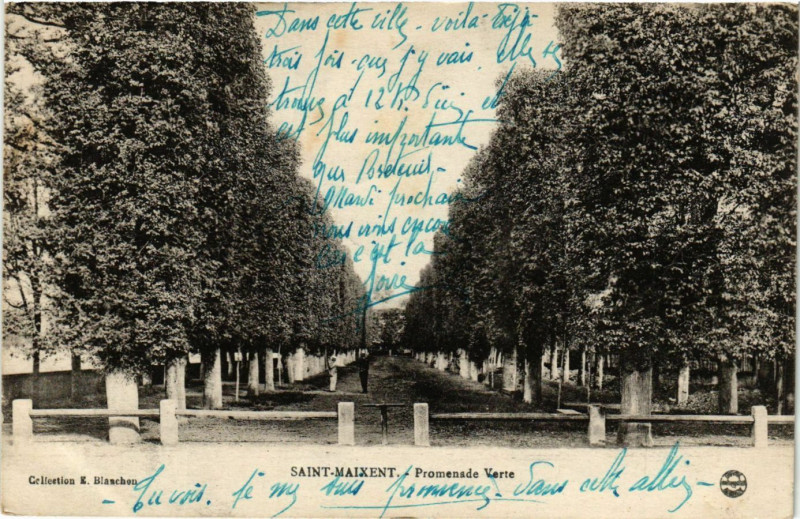 Dans cette ville - voilà déjà
trois fois - que j'y vais. elle se
trouve à 12 K. d'ici, et
est plus importante
que Breteuil -
Mardi prochain
nous irons encore
car c'est la
foire
SAINT-MAIXENT. - Promenade Verte
Collection E. Blanchon
- Tu vois. Je me suis promenée - dans cette allée -